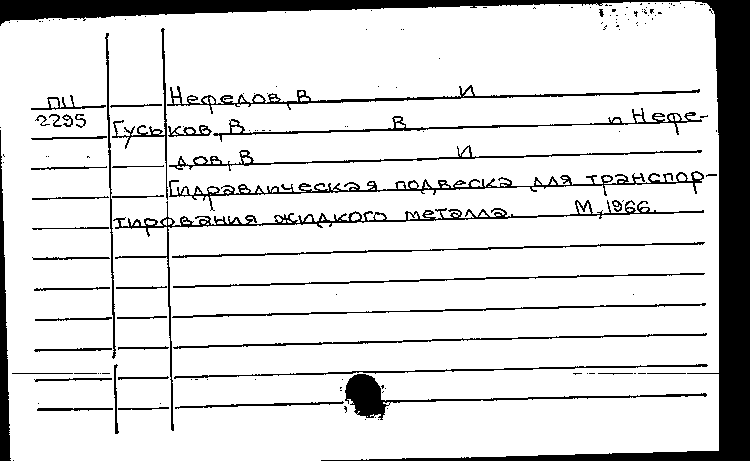 Нефедов, В И
ПЦ
2295 Гуськов, В В п Нефе-
дов, В И
Гидравлическая подвеска для транспор-
тирования жидкого металла. М, 1966.